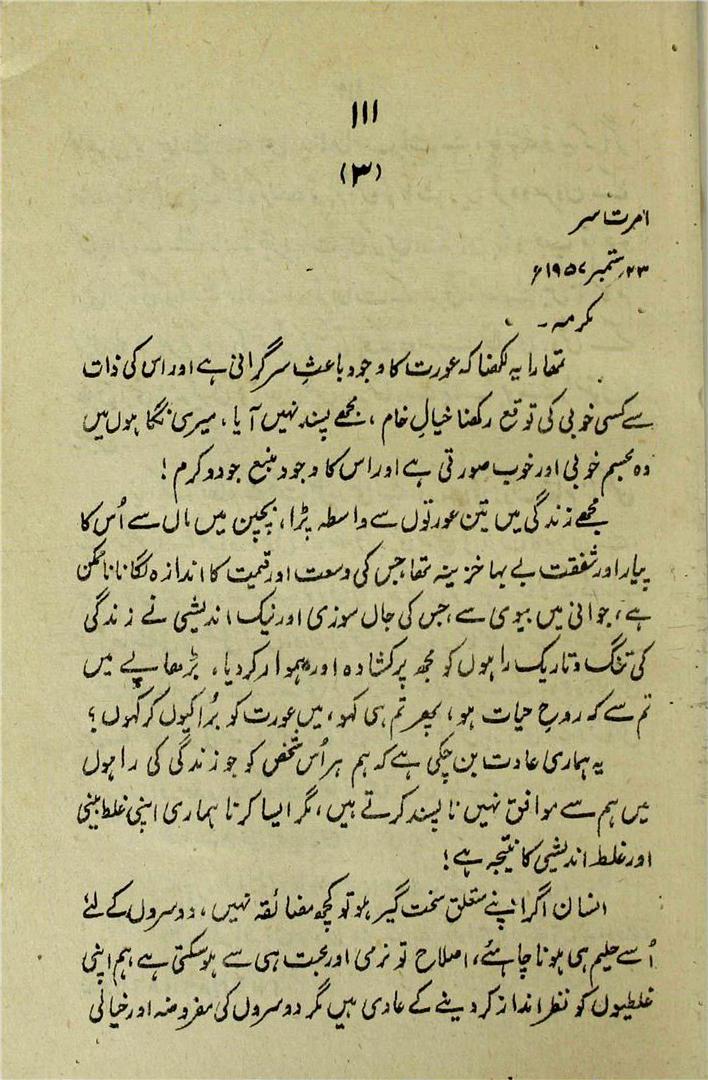 111
(۳)
امرتسر
۲۳؍ستمبر ۱۹۵۷ء
مکرمہ۔
تمھارا یہ لکھنا کہ عورت کا وجود باعثِ سرگرانی ہے اور اس کی ذات
سے کسی خوبی کی توقع رکھنا خیالِ خام، مجھے پسند نہیں آیا، میری نگاہوں میں
وہ مجسم خوبی اور خوب صورتی ہے اور اس کا وجود منبع جود و کرم!
مجھے زندگی میں تین عورتوں سے واسطہ پڑا، بچپن میں ماں سے اُس کا
پیار اور شفقت بے بہا خزینہ تھا جس کی وسعت اور قیمت کا اندازہ لگانا ناممکن
ہے، جوانی میں بیوی سے، جس کی جاں سوزی اور نیک اندیشی نے زندگی
کی تنگ و تاریک راہوں کو مجھ پر کشادہ اور ہموار کر دیا، بڑھاپے میں
تم سے کہ روحِ حیات ہو، پھر تم ہی کہو، میں عورت کو بُرا کیوں کر کہوں؟
یہ ہماری عادت بن چکی ہے کہ ہم ہر اُس شخص کو جو زندگی کی راہوں
میں ہم سے موافق نہیں ناپسند کرتے ہیں، مگر ایسا کرنا ہماری اپنی غلط بینی
اور غلط اندیشی کا نتیجہ ہے!
انسان اگر اپنے متعلق سخت گیر ہو تو کچھ مضائقہ نہیں، دوسروں کے لئے
اُسے حلیم ہی ہونا چاہئے، اصلاح تو نرمی اور محبت ہی سے ہو سکتی ہے ہم اپنی
غلطیوں کو نظر انداز کر دینے کے عادی ہیں مگر دوسروں کی مفروضہ اور خیالی